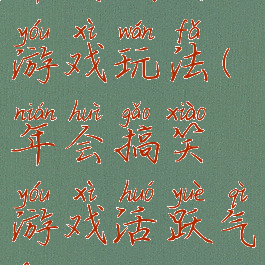 yóu xì wán fǎ
游戏玩法(
nián huì gǎo xiào
年会搞笑
yóu xì huó yuè qì
游戏活跃气